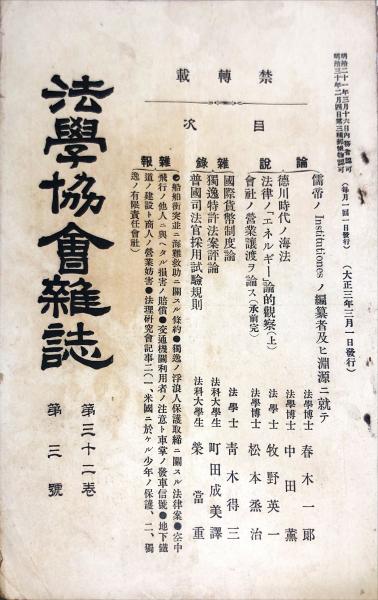 明治二十一年三月十六日內務省認可
明治三十年二月四日第三種郵便物認可
(每月一回一日發行)
(大正三年三月一日發行)
禁轉載
目次
論說
儒帝ノ Institutiones ノ編纂者及ヒ淵源ニ就テ
法學博士 春木一郎
德川時代ノ海法
法學博士 中田薰
法律ノ「エネルギー」論的觀察(上)
法學士 牧野英一
會社ノ營業讓渡ヲ論ス(承前完)
法學博士 松本烝治
雜錄
國際貨幣制度論
法學士 靑木得三
獨逸特許法案評論
法科大學生 町田成美譯
普國司法官採用試驗規則
法科大學生 榮當重
雜報
●船舶衝突並ニ海難救助ニ關スル條約●獨逸ノ浮浪人保護取締ニ關スル法律案●空中
飛行ノ他人ニ與ヘタル損害ノ賠償●交通機關利用者ノ注意ト車掌ノ發車信號●地下鐵
道ノ建設ト商人ノ營業妨害●法理硏究會記事二(一、米國ニ於ケル少年ノ保護、二、獨
逸ノ有限責任會社)
法學協會雜誌
第三十二卷
第三號